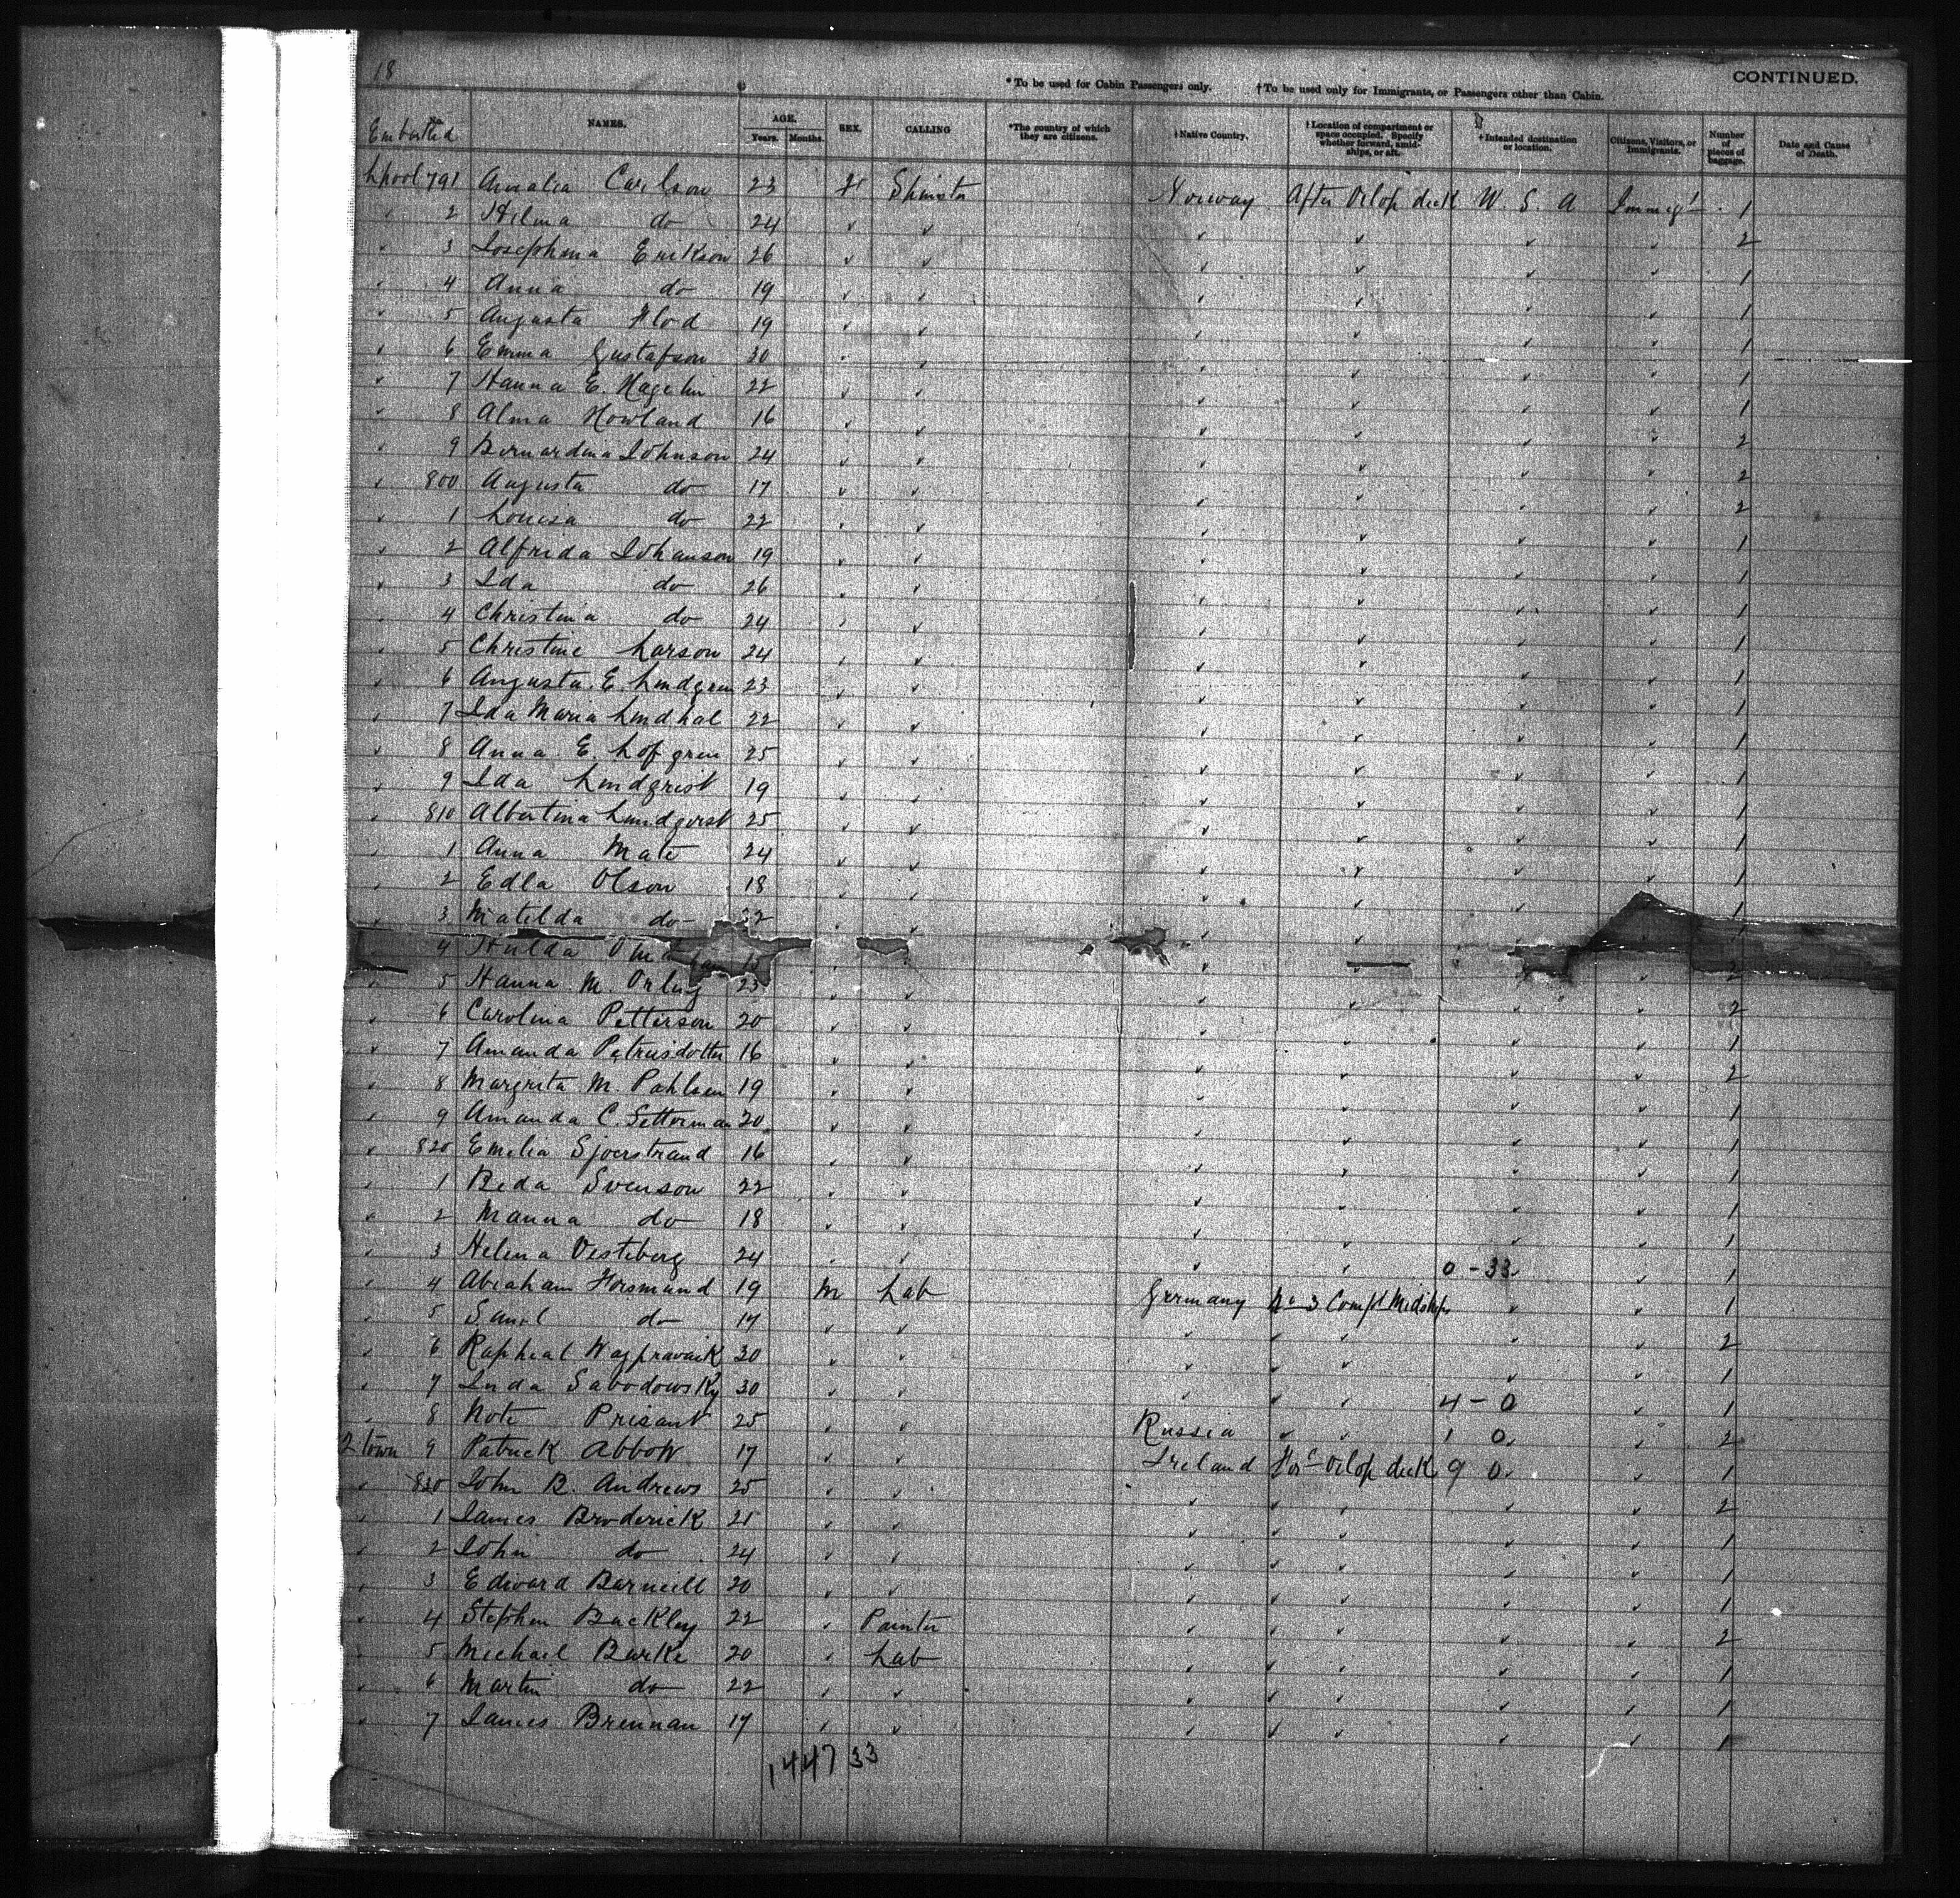 18
CONTINUED.
*To be used for Cabin Passengers only. †To be used only for Immigrants, or Passengers other than Cabin.
Embarked NAMES. AGE. Years. Months. SEX. CALLING *The country of which they are citizens. †Native Country. †Location of compartment or space occupied. Specify whether forward, amidships, or aft. †Intended destination or location. Citizens, Visitors, or Immigrants. Number of pieces of baggage. Date and Cause of Death.
Lpool 791 Amalia Carlson 23 Fr Spinster Norway After Orlop deck U. S. A Immigt 1
" 2 Hilma do 24 " " " " " " 2
" 3 Josephina Erikson 26 " " " " " " 1
" 4 Anna do 19 " " " " " " 1
" 5 Augusta Flod 19 " " " " " " 1
" 6 Emma Gustafson 20 " " " " " " 1
" 7 Hanna E. Hagelin 22 " " " " " " 1
" 8 Alma Howland 16 " " " " " " 2
" 9 Bernardina Johnson 24 " " " " " " 2
" 800 Augusta do 17 " " " " " " 2
" 1 Louisa do 22 " " " " " " 1
" 2 Alfrida Johanson 19 " " " " " " 1
" 3 Ida do 26 " " " " " " 1
" 4 Christina do 24 " " " " " " 1
" 5 Christine Larson 24 " " " " " " 1
" 6 Augusta E. Lindgren 23 " " " " " " 1
" 7 Ida Maria Lindhal 22 " " " " " " 1
" 8 Anna E. Lofgren 25 " " " " " " 1
" 9 Ida Lindqrist 19 " " " " " " 1
" 810 Albertina Lundqvist 25 " " " " " " 1
" 1 Anna Mate 24 " " " " " " 1
" 2 Edla Olson 18 " " " " " " 1
" 3 Matilda do 22 " " " " " " 1
" 4 Hulda " " " " " " 2
" 5 Hanna M. Orling 23 " " " " " " 2
" 6 Carolina Petterson 20 " " " " " " 1
" 7 Amanda Petrusdotter 16 " " " " " " 2
" 8 Margreta M. Pahlsen 19 " " " " " " 1
" 9 Amanda C. Setterman 20 " " " " " " 1
" 820 Emelia Sjoerstrand 16 " " " " " " 1
" 1 Beda Svenson 22 " " " " " " 1
" 2 Manna do 18 " " " " " " 1
" 3 Helena Vesteberg 24 " " " " 0 - 33 " " 1
" 4 Abraham Horsmund 19 M Lab Germany No 3 Compt Midships " " 1
" 5 Saml do 17 " " " " " " " 2
" 6 Rapheal 30 " " " " " " " 1
" 7 Juda Sabodowsky 30 " " " " " 4 - 0 " 1
" 8 Note Prisant 25 " " Russia " " 1 0 " " 2
Q town 9 Patrick Abbott 17 " " Ireland Ford Orlop deck 9 0 " " 1
" 830 John B. Andrews 25 " " " " " " " 2
" 1 James Broderick 21 " " " " " " " 1
" 2 John do 24 " " " " " " " 1
" 3 Edward Barneill 20 " " " " " " " 1
" 4 Stephen Buckley 22 " Painter " " " " " 2
" 5 Michael Burke 20 " Lab " " " " " 1
" 6 Martin do 22 " " " " " " " 1
" 7 James Brennan 17 " " " " " " " 1
1447 33